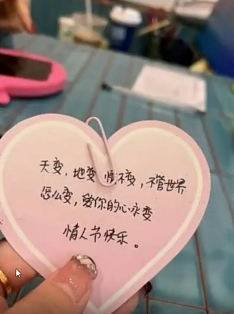 天变，地变，情不变，不管世界
怎么变，爱你的心永不变
情人节快乐。